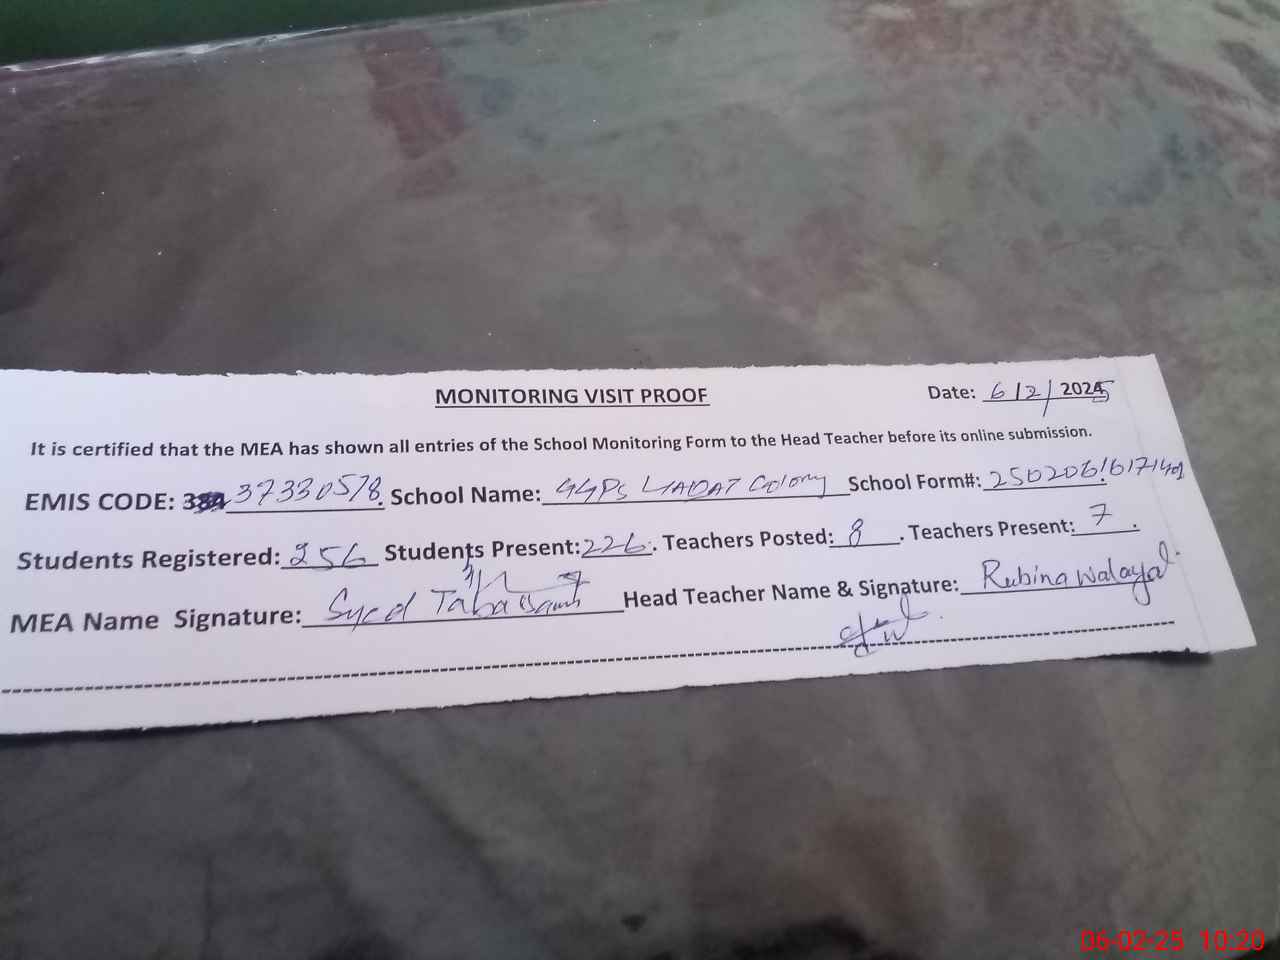 MONITORING VISIT PROOF Date: 6/2/2025
It is certified that the MEA has shown all entries of the School Monitoring Form to the Head Teacher before its online submission.
EMIS CODE: 37330578. School Name: GGPS LIAQAT Colony School Form#:
Students Registered: 256 Students Present: 226. Teachers Posted: 8. Teachers Present: 7.
MEA Name Signature: Syed Tabassam Head Teacher Name & Signature: Rubina Walayat
06-02-25 10:20